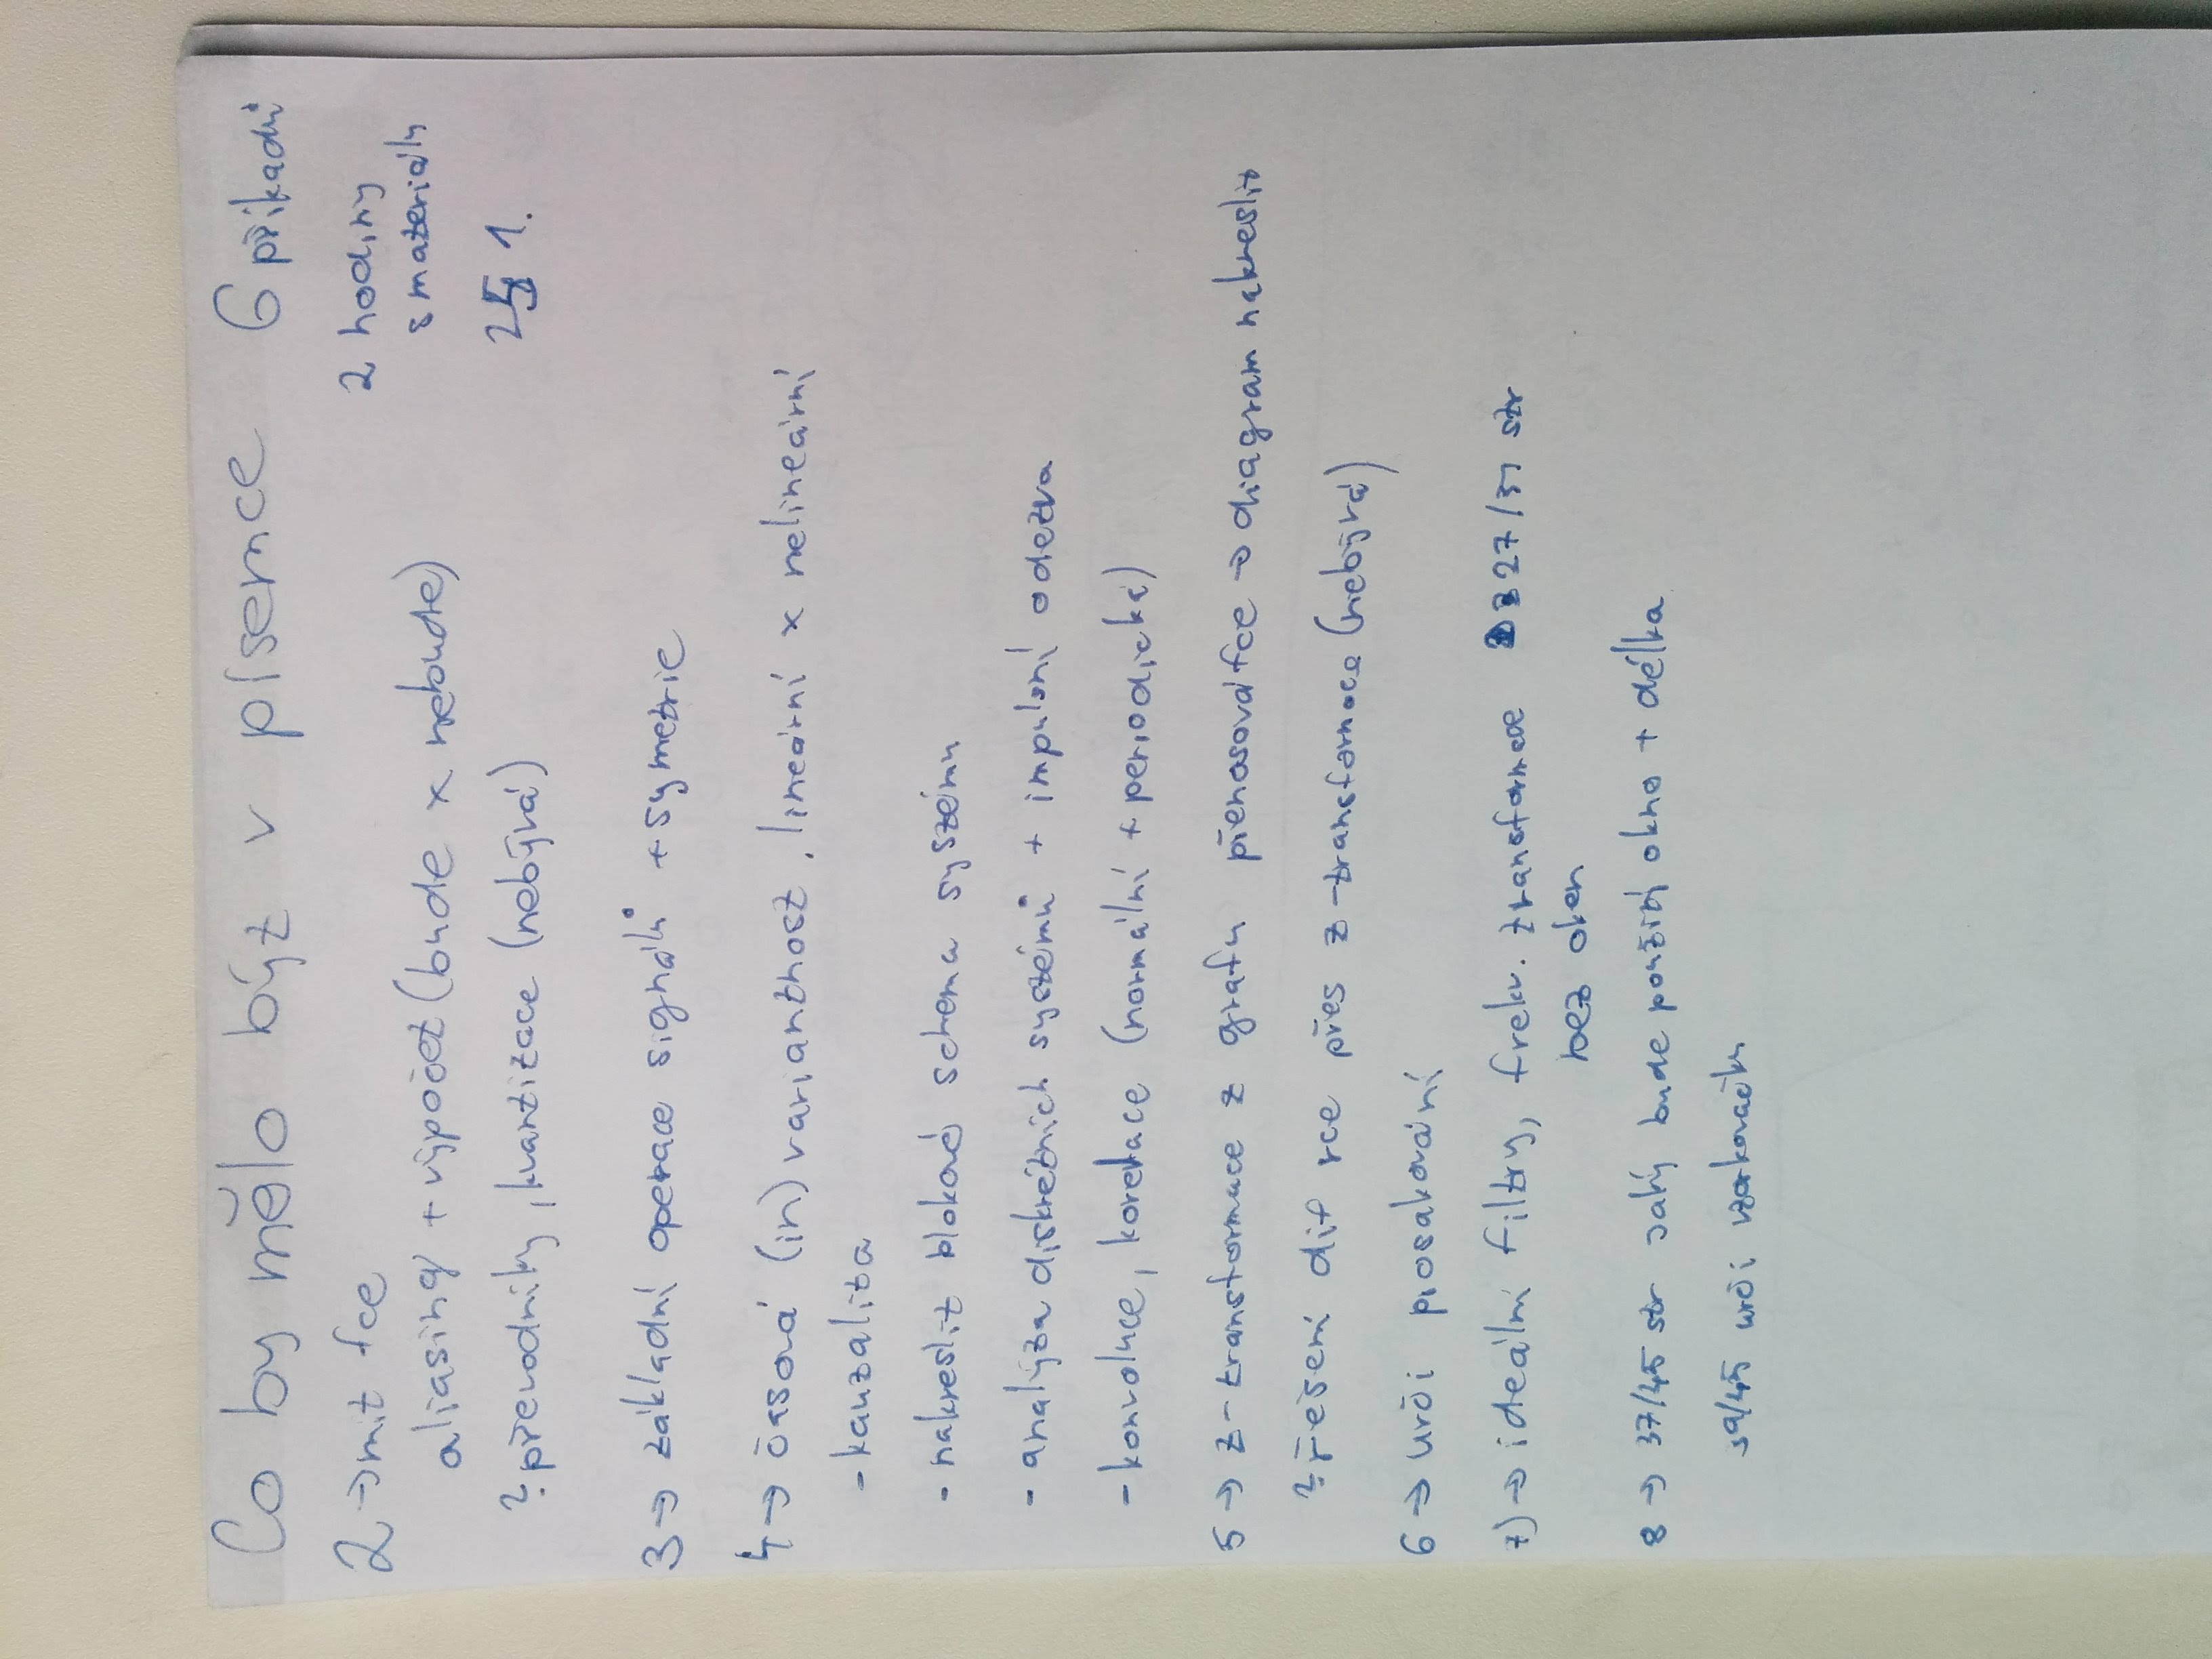 Co by mělo být v písence 6 příkadů
2 → mit fce 2 hodiny
aliasing + výpočet (bude x nebude) s materiály
? převodníky, kvantizace (nebývá) 1.
3 → základní operace signálů + symetrie
4 → časová (in)variantnost, lineární x nelineární
- kauzalita
- nakreslit blokové schema systému
- analýza diskrétních systémů + impulsní odezva
- konvoluce, korelace (normální + periodická)
5 → z-transformace z grafu přenosová fce → diagram nakreslit
? řešení dif rce přes z-transformace (nebývá)
6 → urči prosakování
7) → ideální filtry, frekv. transformace 27/51 str
bez oken
8 → 37/45 str jaký bude použití okno + délka
39/45 urči vzorkovačku